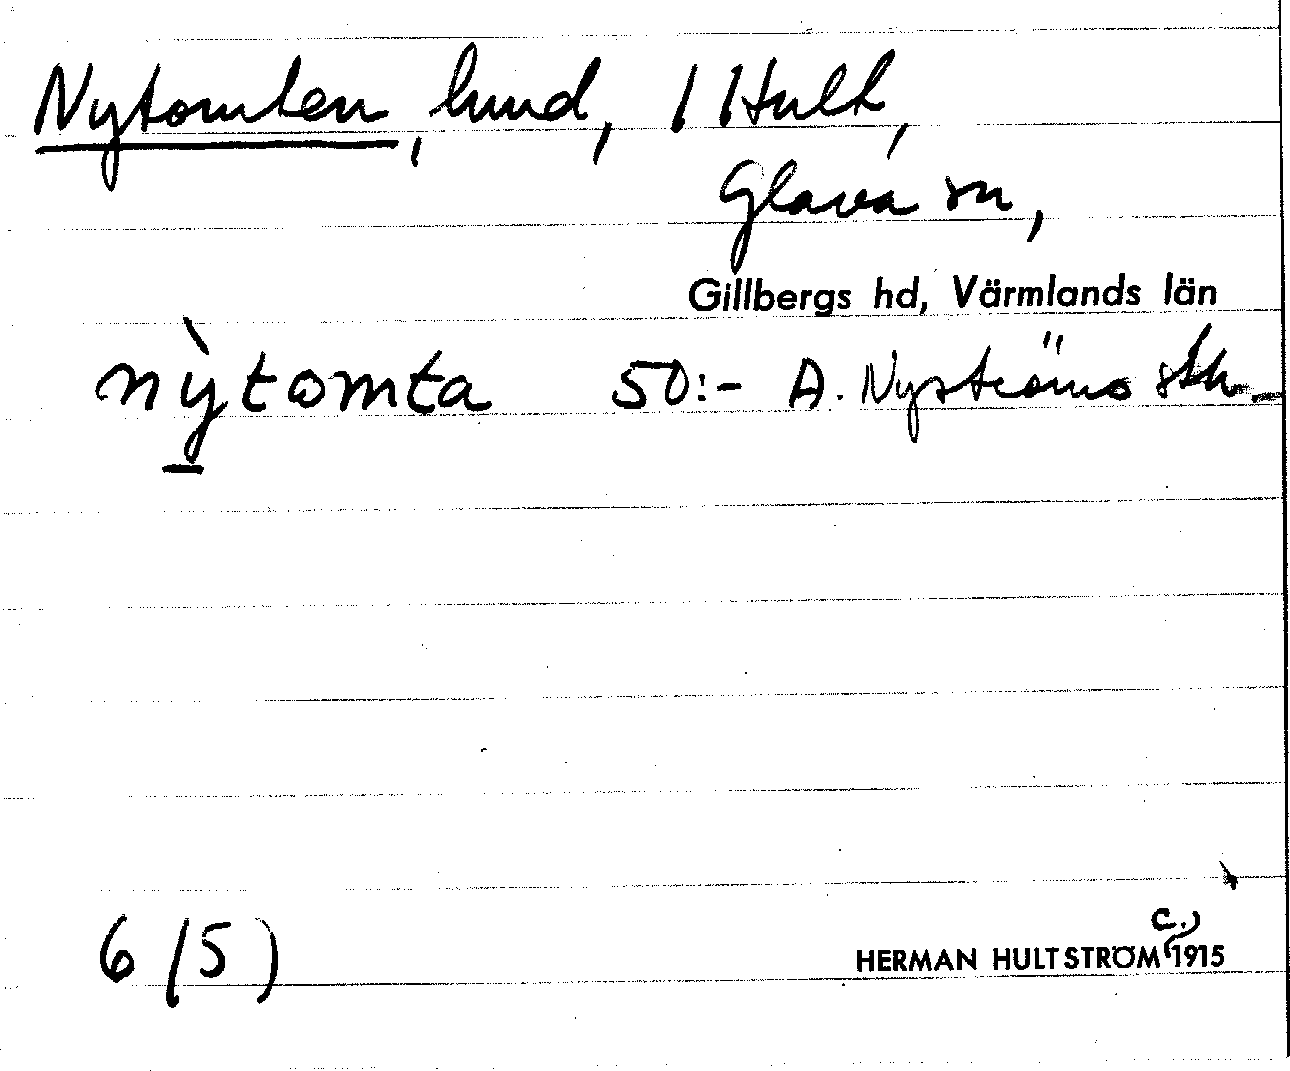 Nytomten, hmd, / Hult,
Glava sn,
Gillbergs hd, Värmlands län
nỳtomta 50:- A. Nyströms
6 (5)
c.
HERMAN HULTSTRÖM 1915